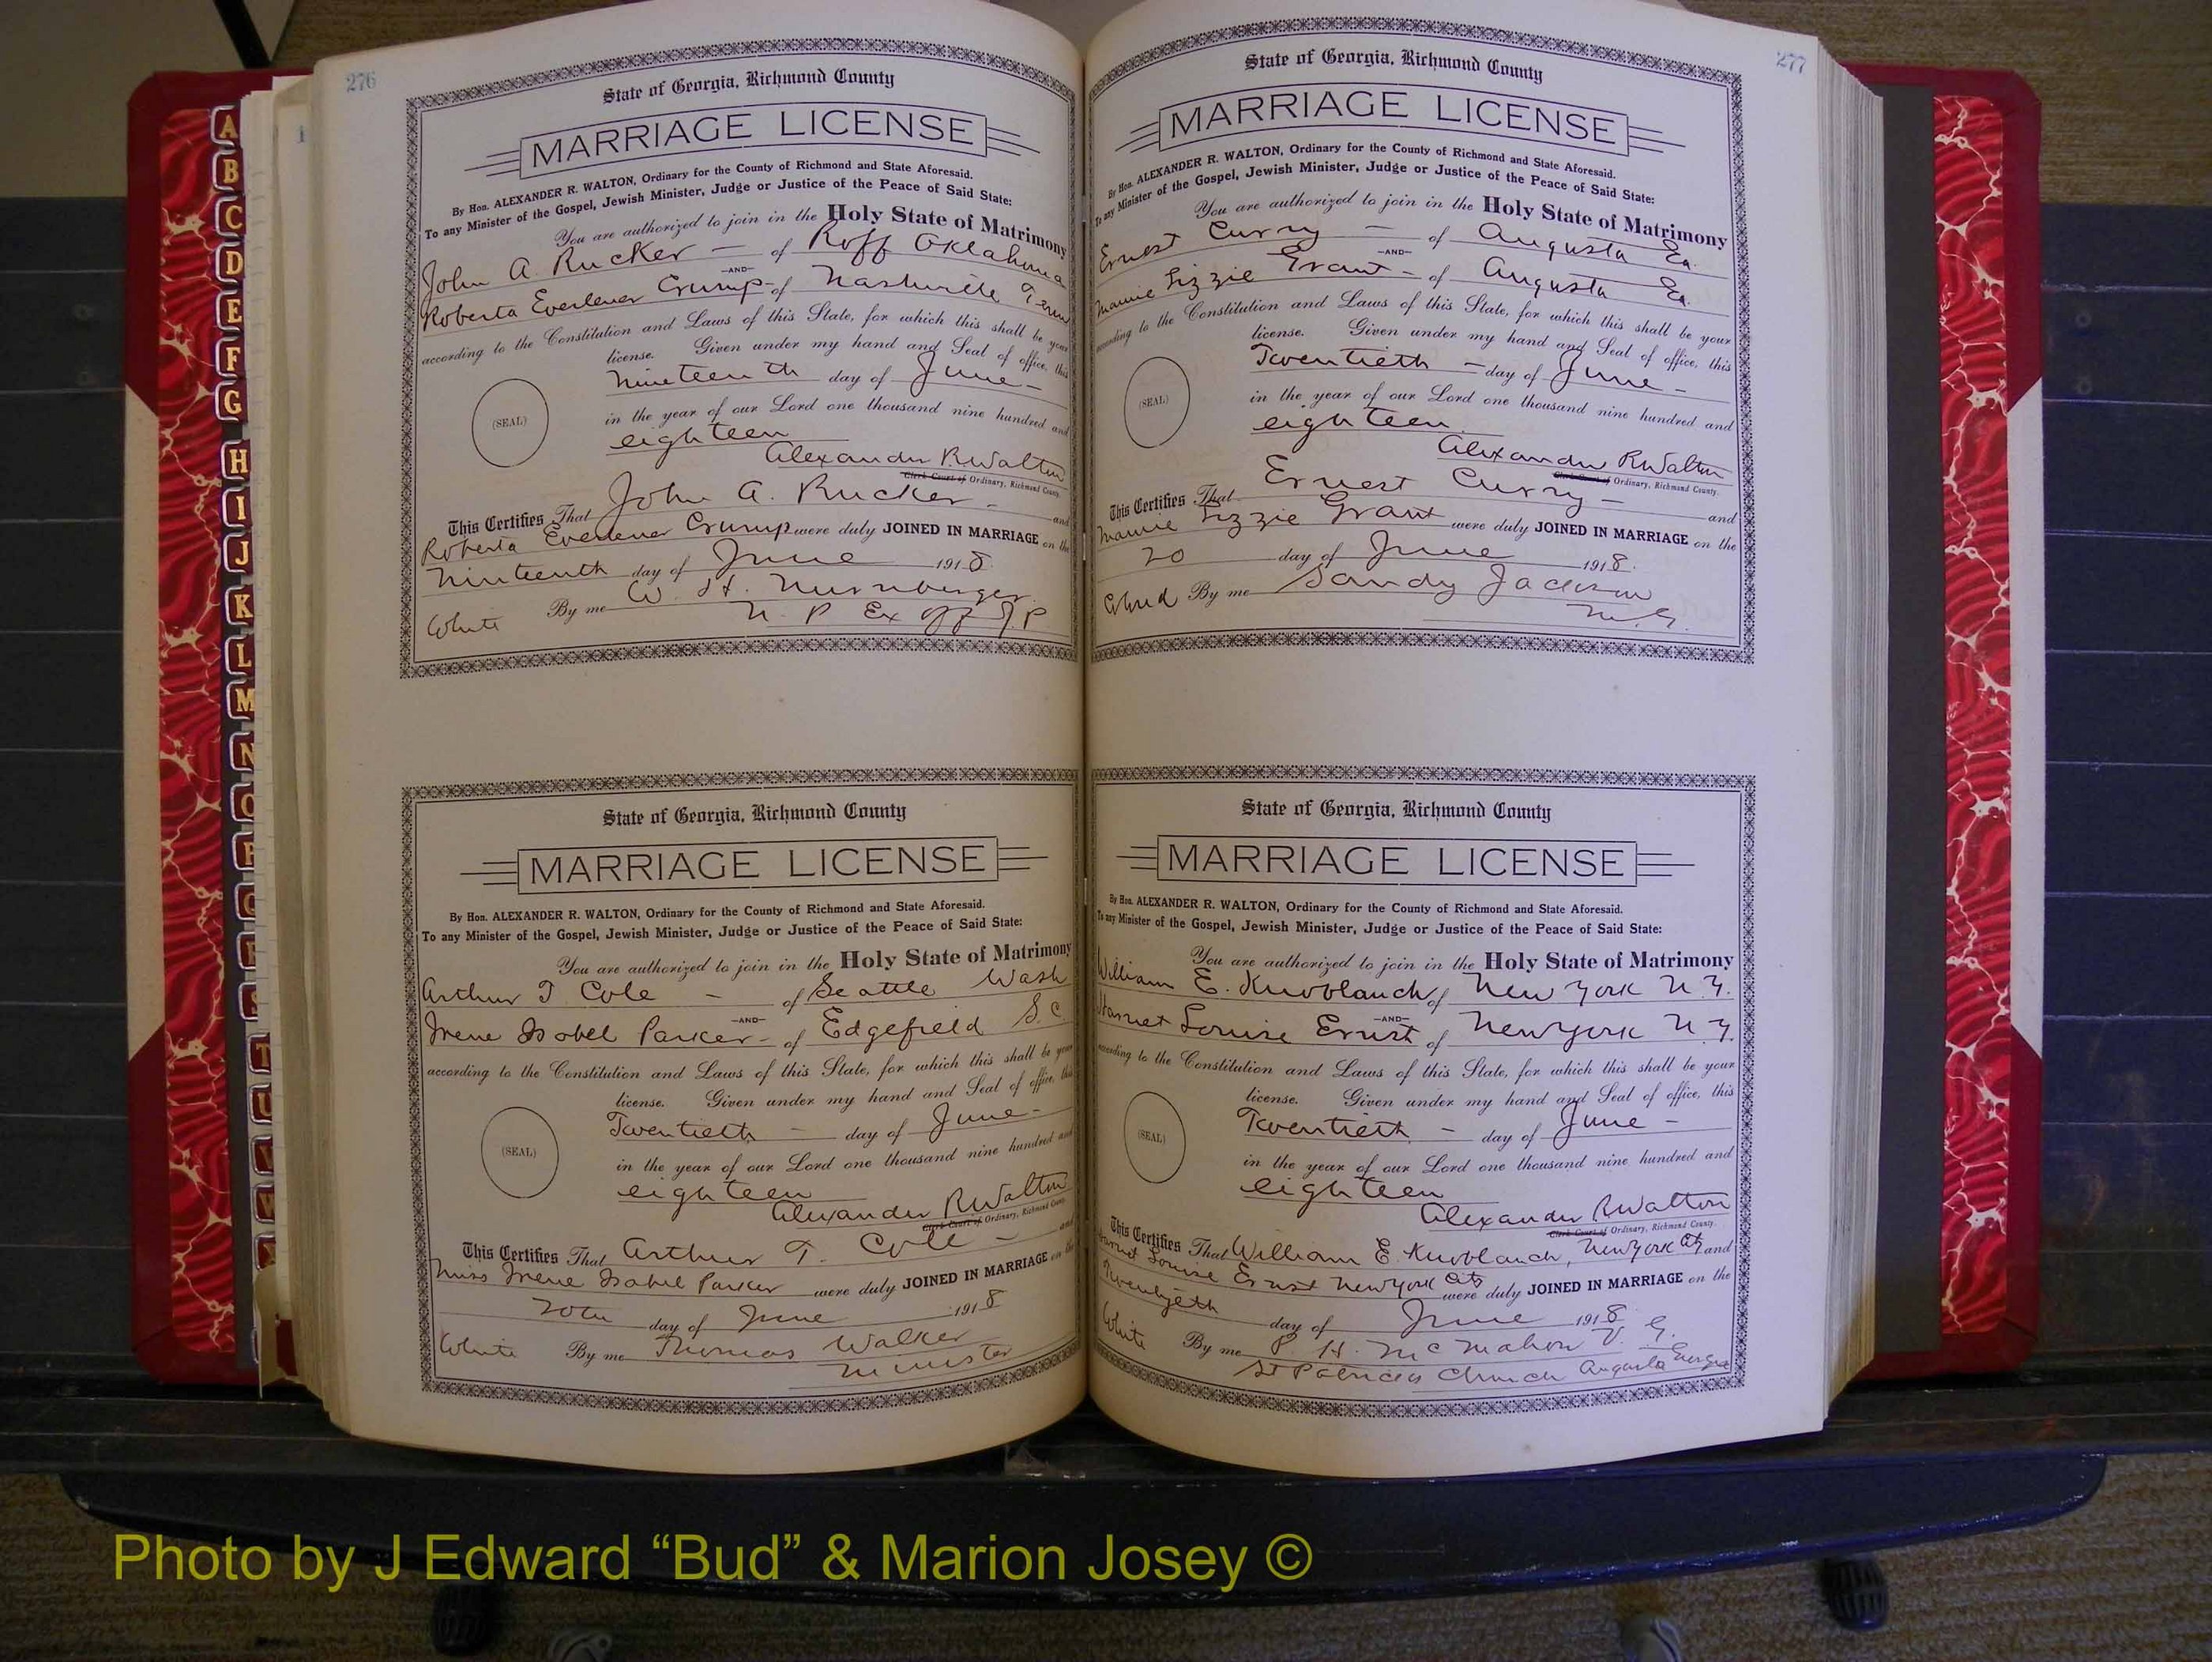 276
State of Georgia, Richmond County
MARRIAGE LICENSE
By Hon. ALEXANDER R. WALTON, Ordinary for the County of Richmond and State Aforesaid.
To any Minister of the Gospel, Jewish Minister, Judge or Justice of the Peace of Said State:
You are authorized to join in the Holy State of Matrimony
John A. Rucker — of Roff Oklahoma
—AND—
Roberta Everlener Crump - of Nashville Tenn
according to the Constitution and Laws of this State, for which this shall be your
license. Given under my hand and Seal of office, this
Nineteenth day of June -
(SEAL)
in the year of our Lord one thousand nine hundred and
eighteen
Alexander R Walton
Clerk Court of Ordinary, Richmond County.
This Certifies That John A. Rucker - and
Roberta Everlener Crump were duly JOINED IN MARRIAGE on the
Nineteenth day of June 1918.
White By me W. H. Nurnberger
N. P Ex Off J. P
State of Georgia, Richmond County
MARRIAGE LICENSE
By Hon. ALEXANDER R. WALTON, Ordinary for the County of Richmond and State Aforesaid.
To any Minister of the Gospel, Jewish Minister, Judge or Justice of the Peace of Said State:
You are authorized to join in the Holy State of Matrimony
Arthur T Cole - of Seattle Wash
—AND—
Irene Isobel Parker - of Edgefield S.C.
according to the Constitution and Laws of this State, for which this shall be your
license. Given under my hand and Seal of office, this
Twentieth - day of June -
(SEAL)
in the year of our Lord one thousand nine hundred and
eighteen
Alexander R Walton
Clerk Court of Ordinary, Richmond County.
This Certifies That Arthur T. Cole - and
Miss Irene Isabel Parker were duly JOINED IN MARRIAGE on the
20th day of June 1918
White By me Thomas Walker
Minister
277
State of Georgia, Richmond County
MARRIAGE LICENSE
By Hon. ALEXANDER R. WALTON, Ordinary for the County of Richmond and State Aforesaid.
To any Minister of the Gospel, Jewish Minister, Judge or Justice of the Peace of Said State:
You are authorized to join in the Holy State of Matrimony
Ernest Curry — of Augusta Ga.
—AND—
Mamie Lizzie Grant - of Augusta Ga.
according to the Constitution and Laws of this State, for which this shall be your
license. Given under my hand and Seal of office, this
Twentieth - day of June -
(SEAL)
in the year of our Lord one thousand nine hundred and
eighteen
Alexander R Walton
Clerk Court of Ordinary, Richmond County.
This Certifies That Ernest Curry - and
Mamie Lizzie Grant were duly JOINED IN MARRIAGE on the
20 day of June 1918.
Colrd By me Sandy Jackson
M. G.
State of Georgia, Richmond County
MARRIAGE LICENSE
By Hon. ALEXANDER R. WALTON, Ordinary for the County of Richmond and State Aforesaid.
To any Minister of the Gospel, Jewish Minister, Judge or Justice of the Peace of Said State:
You are authorized to join in the Holy State of Matrimony
William E. Knoblauch of New York N.Y.
—AND—
Harriet Louise Ernst of New York N.Y.
according to the Constitution and Laws of this State, for which this shall be your
license. Given under my hand and Seal of office, this
Twentieth - day of June -
(SEAL)
in the year of our Lord one thousand nine hundred and
eighteen
Alexander R Walton
Clerk Court of Ordinary, Richmond County.
This Certifies That William E. Knoblauch, New York City and
Harriet Louise Ernst New York City were duly JOINED IN MARRIAGE on the
Twentyeth day of June 1918
White By me P. H. McMahon V. G.
St Patricks Church Augusta Georgia
A
B
C
D
E
F
G
H
I
J
K
L
M
N
O
P
Q
R
S
T
U
V
W
Photo by J Edward “Bud” & Marion Josey ©